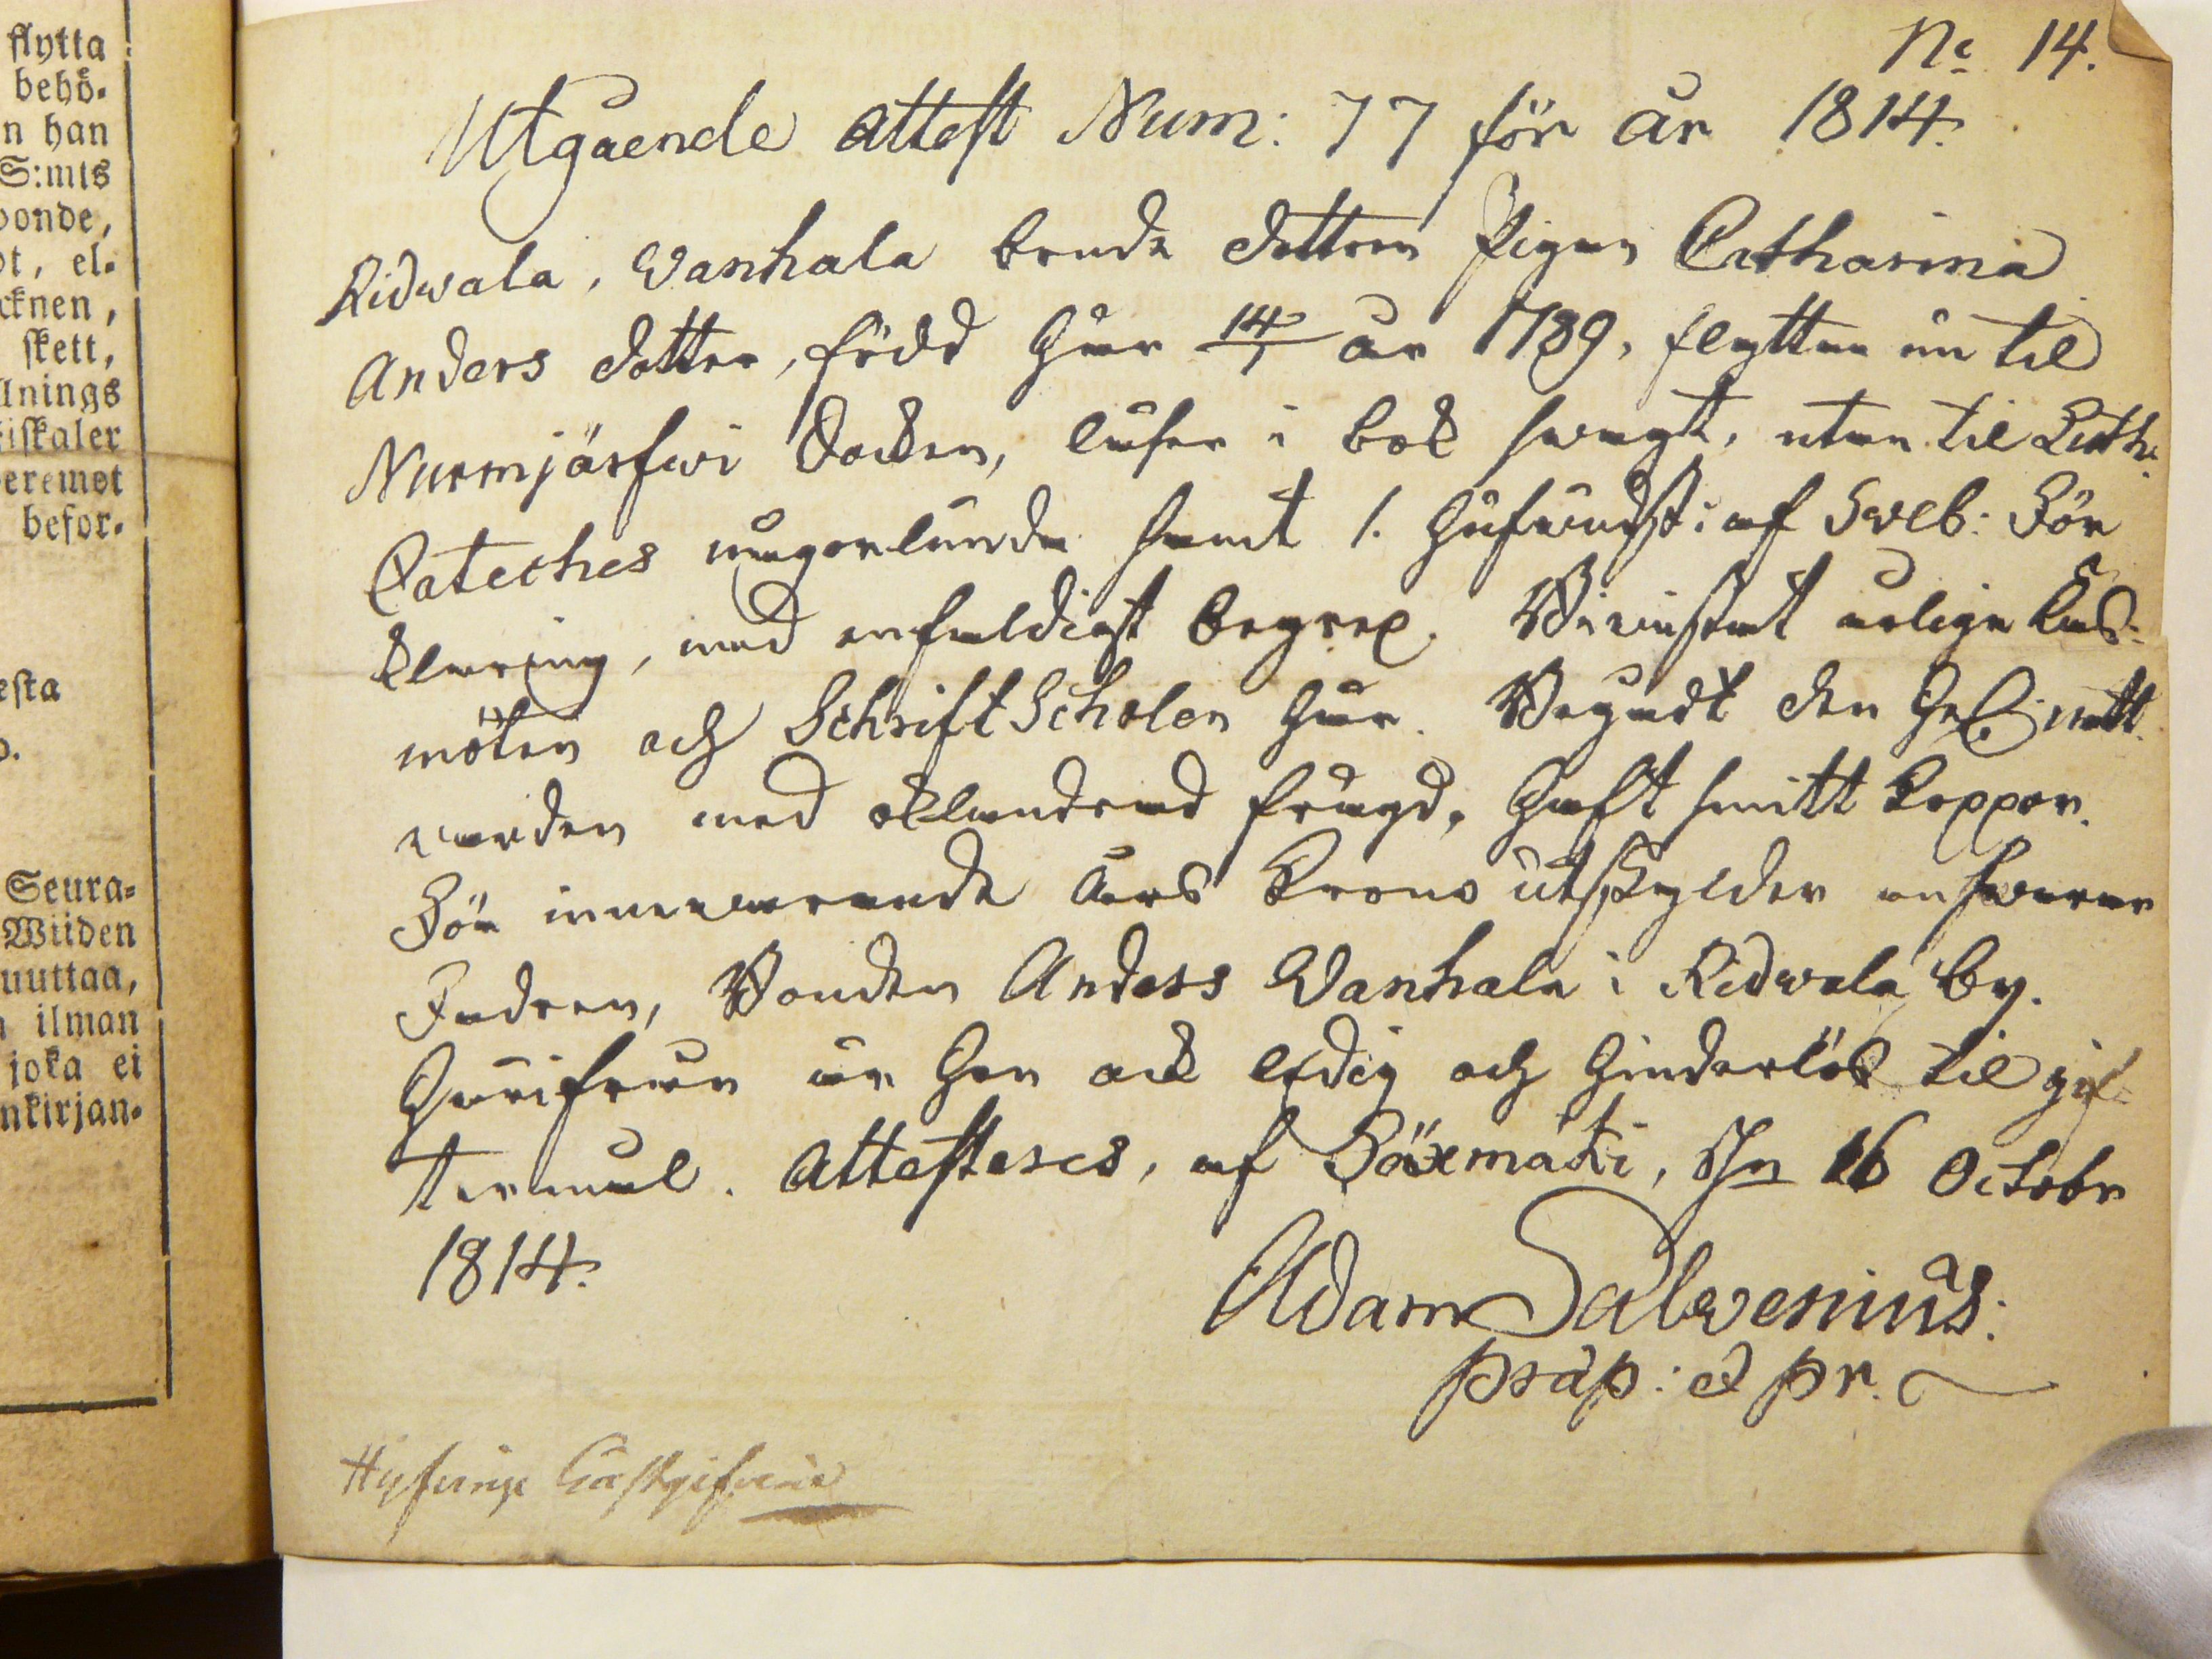 flytta
behö-
n han
S:mts
bonde,
ot, el-
cknen,
skett,
llnings
fiskaler
deremot
befor-
esta
o.
Seura-
Wiiden
muuttaa,
n ilman
joka ei
nkirjan-
No 14.
Utgående attest Num: 77 för år 1814.
Ridwala, Wanhala bonde dottren Pigan Catharina
Anders dotter, född här 14/7 år 1789, flyttar nu til
Nurmjärfwi Socken, läser i bok swagt, utan til Luth:
Cateches någorlunda samt 1. Hufwudst: af Sweb: För
klaring, med enfaldigt begrep. Bewistat årlige Läs-
möten och Schrift Scholen här. Begådt den Hel. natt
varden med oklandrad frägd, haft smitt koppor.
För innevarande års Krono utskylder answarar
Fadren, Bonden Anders Wanhala i Ridwala by.
Härifrån är hon ock ledig och hinderlös til gif-
termål. Attesteres, af Jäxmäki, d. 16 Octobr
1814.
Adam Salwenius:
præp: & pr.
Hyfinge Gästgifveri